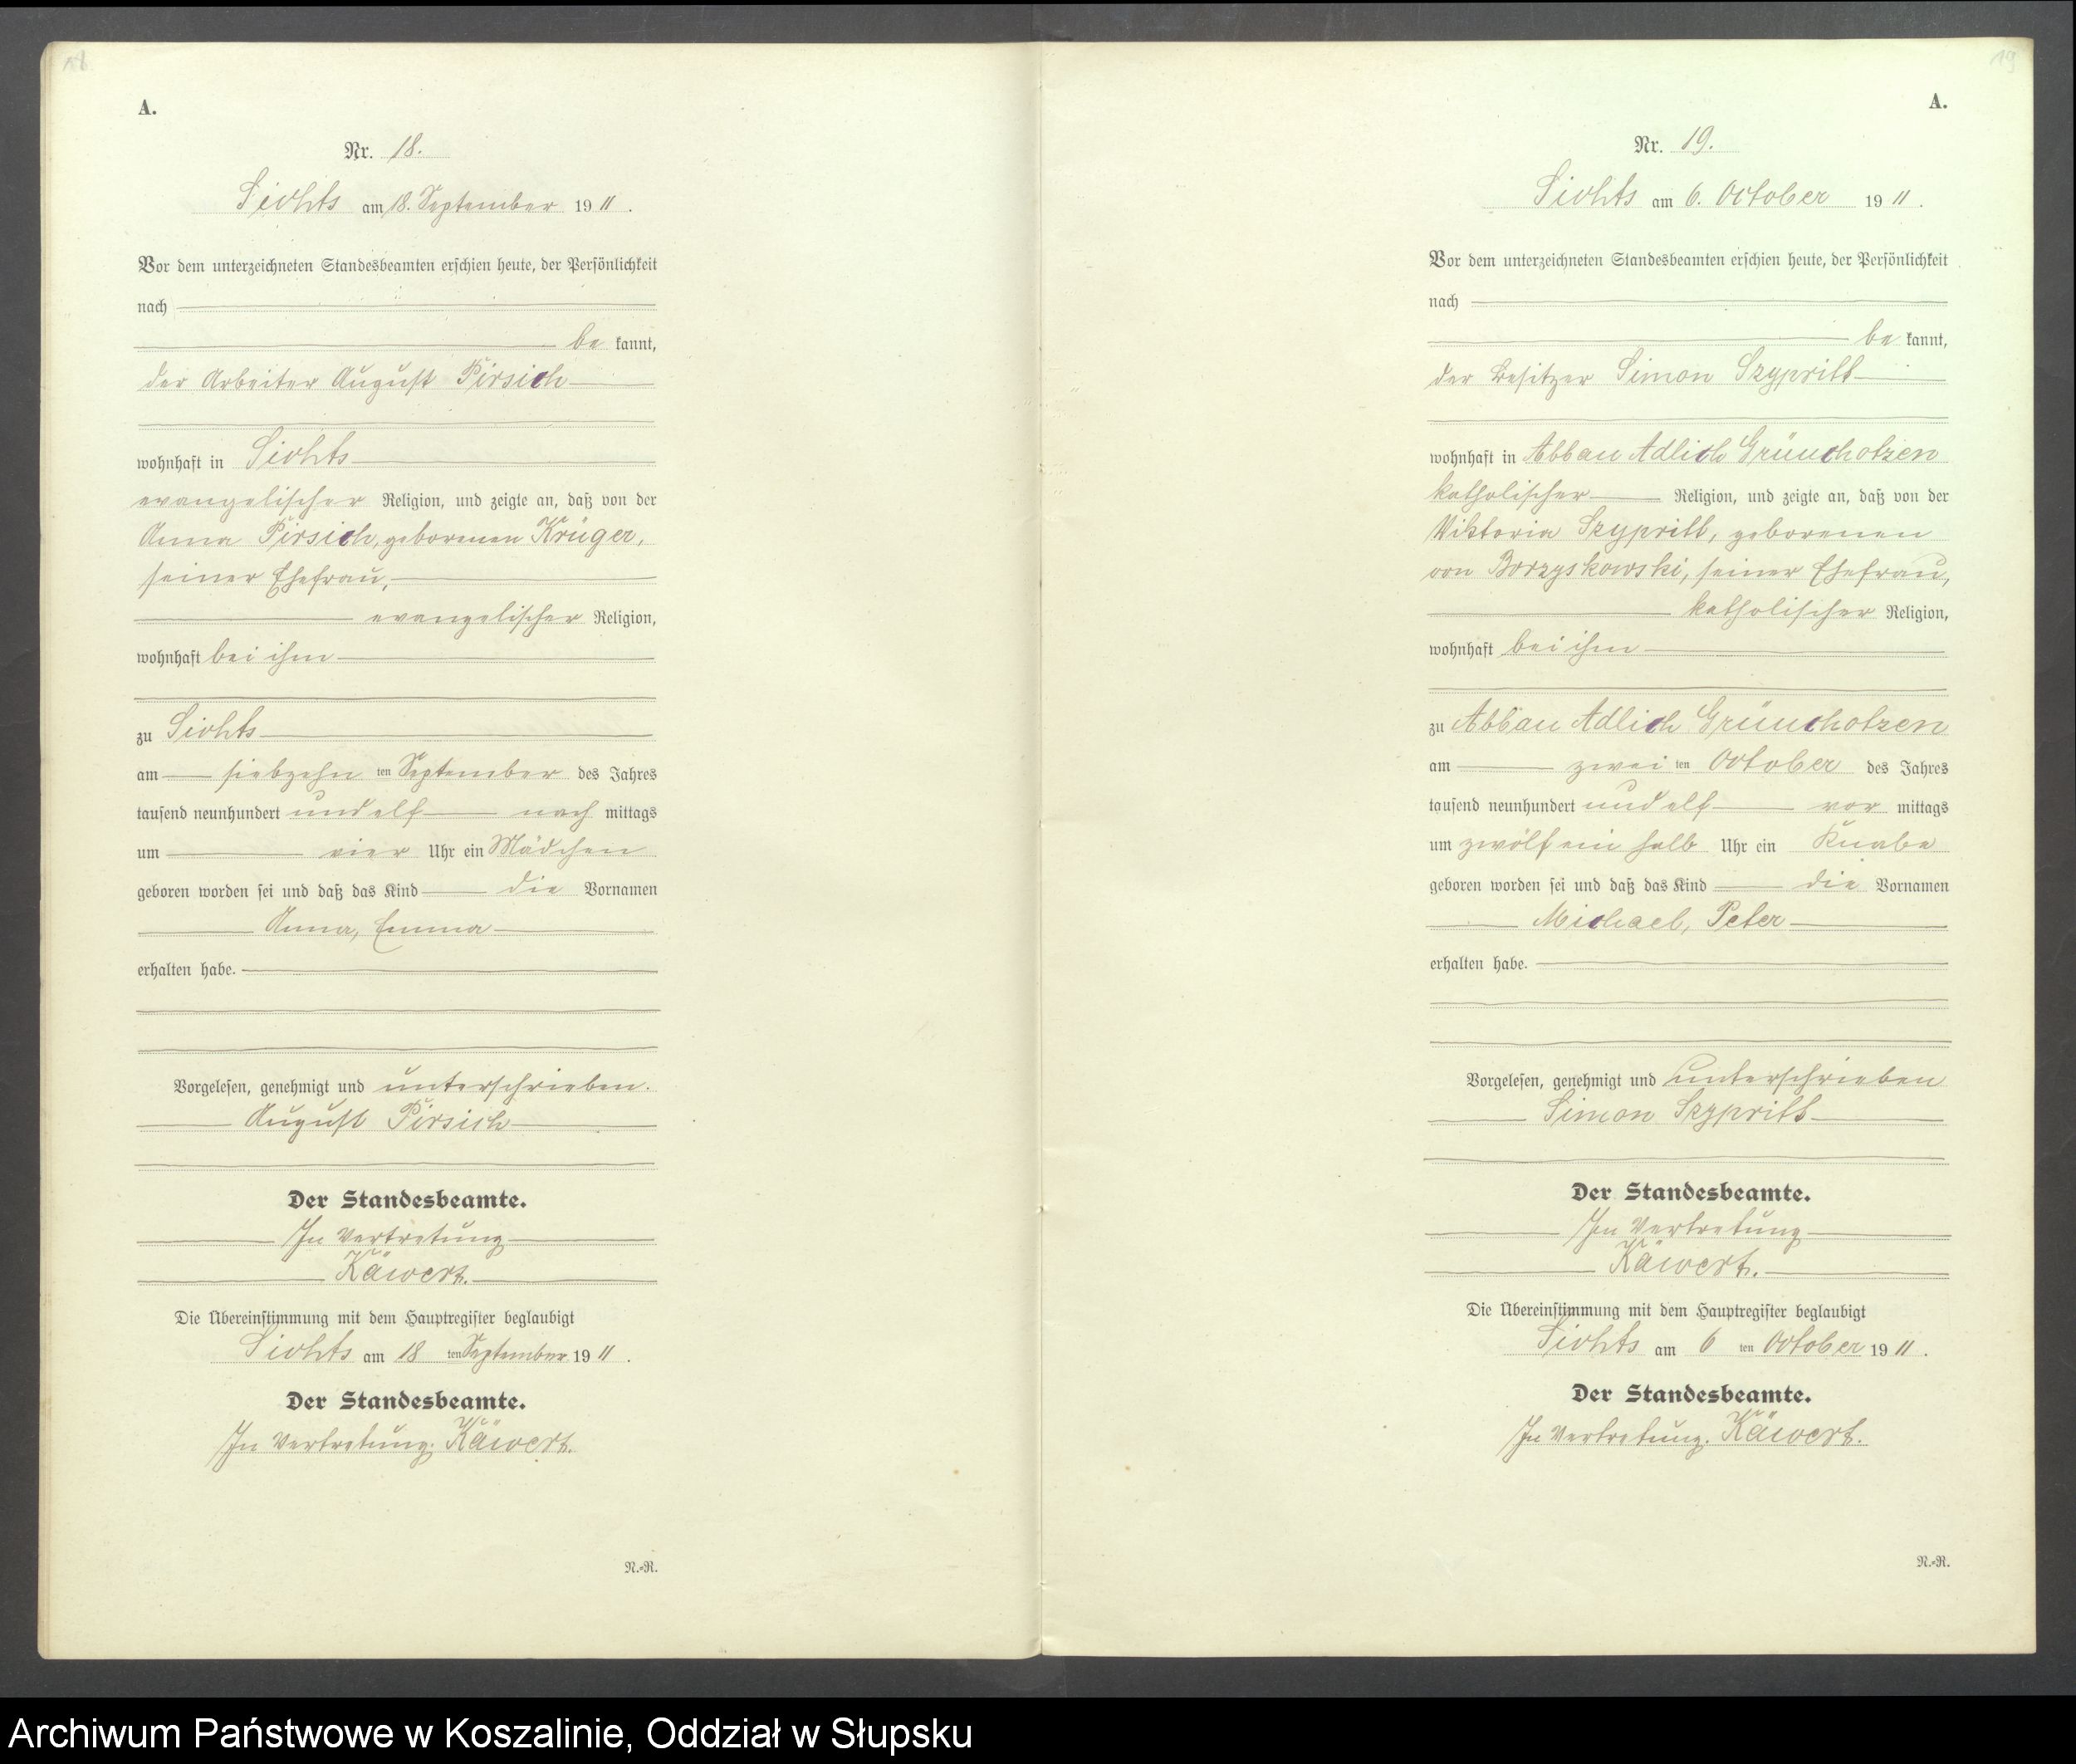 18
A.
Nr. 18.
Sichts am 18. September 1911.
Vor dem unterzeichneten Standesbeamten erschien heute, der Persönlichkeit
nach
be kannt,
der Arbeiter August Pirsich
wohnhaft in Sichts
evangelischer Religion, und zeigte an, daß von der
Anna Pirsich, geborenen Krüger,
seiner Ehefrau,
evangelischer Religion,
wohnhaft bei ihm
zu Sichts
am siebzehn ten September des Jahres
tausend neunhundert und elf nach mittags
um vier Uhr ein Mädchen
geboren worden sei und daß das Kind die Vornamen
Anna, Emma
erhalten habe.
Vorgelesen, genehmigt und unterschrieben.
August Pirsich
Der Standesbeamte.
In Vertretung
Käwert.
Die Übereinstimmung mit dem Hauptregister beglaubigt
Sichts am 18 ten September 1911.
Der Standesbeamte.
In Vertretung. Käwert.
N.-R.
19
A.
Nr. 19.
Sichts am 6. October 1911.
Vor dem unterzeichneten Standesbeamten erschien heute, der Persönlichkeit
nach
be kannt,
der Besitzer Simon Szypritt
wohnhaft in Abbau Adlich Grünchotzen
katholischer Religion, und zeigte an, daß von der
Viktoria Szypritt, geborenen
von Borzyskowski, seiner Ehefrau,
katholischer Religion,
wohnhaft bei ihm
zu Abbau Adlich Grünchotzen
am zwei ten October des Jahres
tausend neunhundert und elf vor mittags
um zwölf ein halb Uhr ein Knabe
geboren worden sei und daß das Kind die Vornamen
Michael, Peter
erhalten habe.
Vorgelesen, genehmigt und unterschrieben
Simon Szypritt
Der Standesbeamte.
In Vertretung
Käwert.
Die Übereinstimmung mit dem Hauptregister beglaubigt
Sichts am 6 ten October 1911.
Der Standesbeamte.
In Vertretung. Käwert.
N.-R.
Archiwum Państwowe w Koszalinie, Oddział w Słupsku